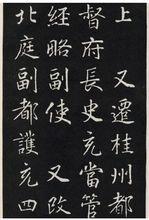 上　又遷桂州都
督府長史充當管
經略副使　又改
北庭副都護充四